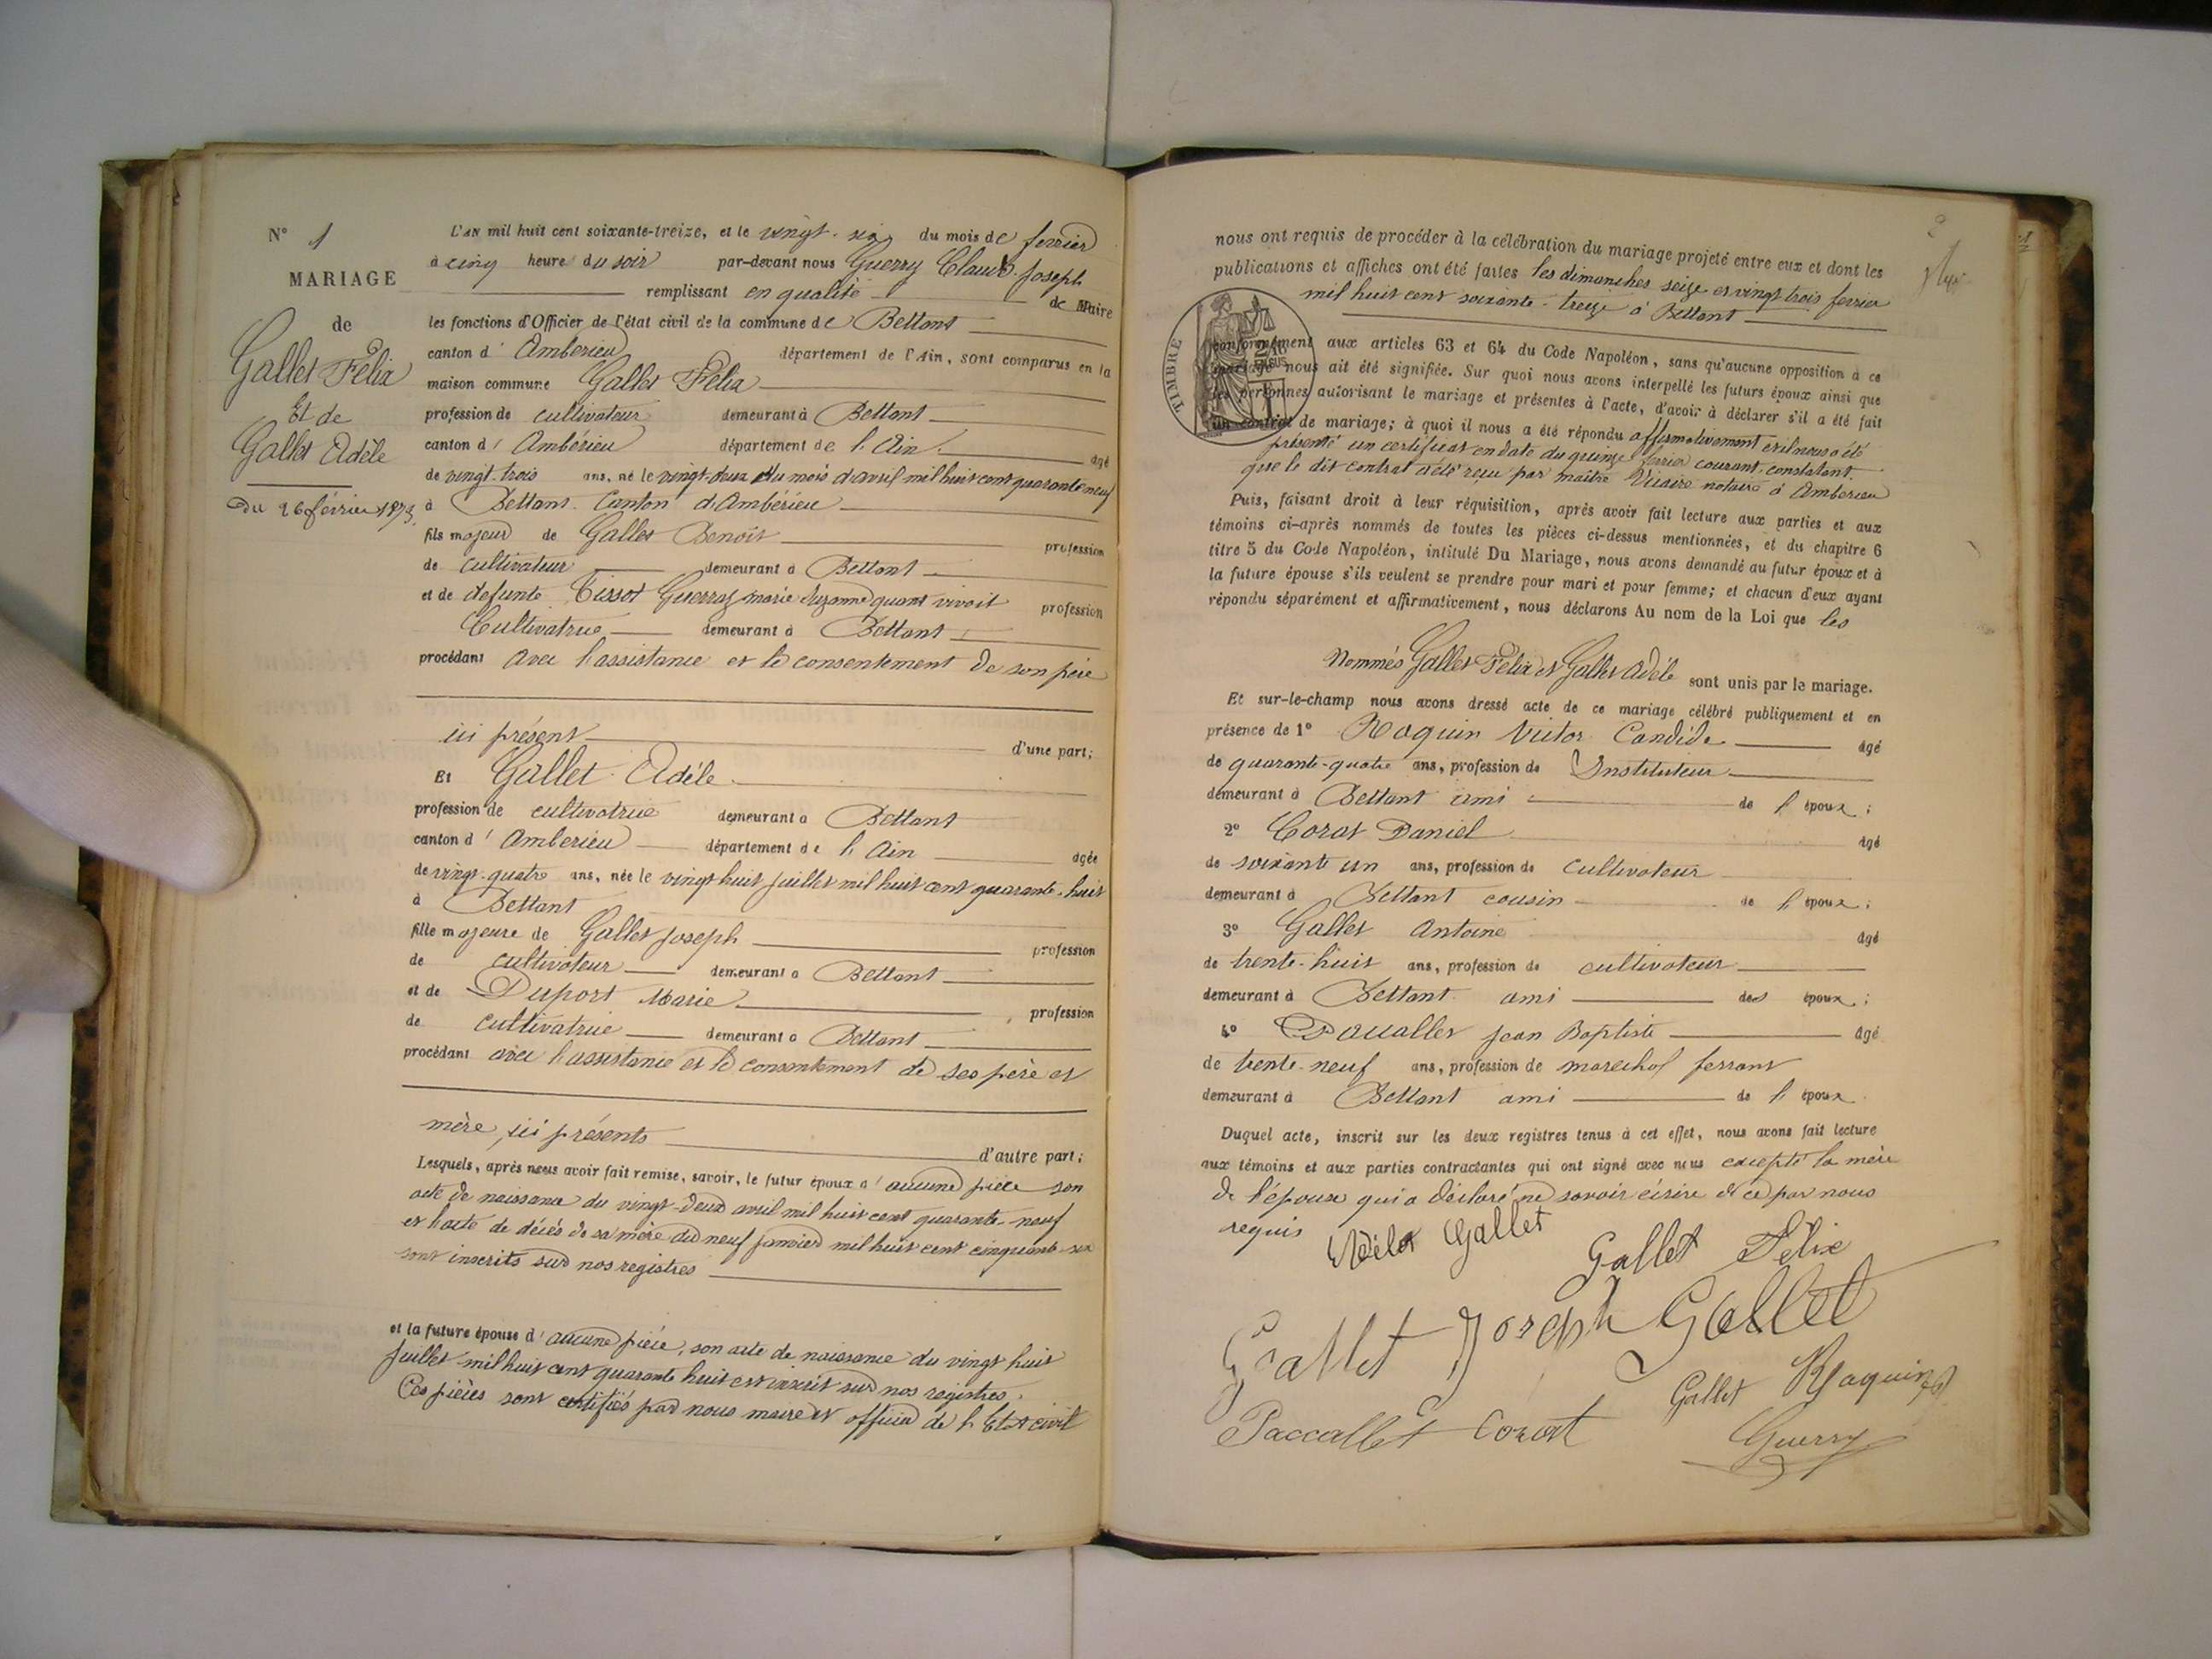 N° 1
MARIAGE
de
Gallet Félix
Et de
Gallet Adèle
Du 26 février 1873.
L'AN mil huit cent soixante-treize, et le vingt-six du mois de fevrier
à cinq heure du soir par-devant nous Guerry Claude Joseph
remplissant en qualité de Maire
les fonctions d'Officier de l'état civil de la commune de Bettant
canton d' Amberieu département de l'Ain, sont comparus en la
maison commune Gallet Félix
profession de cultivateur demeurant à Bettant
canton d' Ambérieu département de l'Ain agé
de vingt-trois ans, né le vingt-deux du mois d'avril mil huit cent quarante neuf
à Bettant Canton d'Ambérieu
fils majeur de Gallet Benoît profession
de cultivateur demeurant à Bettant
et de defunte Tissot Guerraz marie Suzanne quant vivait profession
Cultivatrice demeurant à Bettant
procédant avec l'assistance et le consentement de son père
ici présent d'une part;
Et Gallet Adèle
profession de cultivatrice demeurant à Bettant
canton d' Amberieu département de l'Ain agée
de vingt-quatre ans, née le vingt huit juillet mil huit cent quarante-huit
à Bettant
fille majeure de Gallet Joseph profession
de cultivateur demeurant à Bettant
et de Duport Marie profession
de cultivatrice demeurant à Bettant
procédant avec l'assistance et le consentement de ses père et
mère, ici présents d'autre part;
Lesquels, après nous avoir fait remise, savoir, le futur époux d' aucune pièce son
acte de naissance du vingt-deux avril mil huit cent quarante-neuf
et l'acte de décés de sa mère du neuf janvier mil huit cent cinquante-six
sont inscrits sur nos registres
et la future épouse d' aucune pièce, son acte de naissance du vingt huit
juillet mil huit cent quarante huit est inscrit sur nos registres.
Ces pièces sont certifiés par nous maire et officier de l'Etat civil
nous ont requis de procéder à la célébration du mariage projeté entre eux et dont les
publications et affiches ont été faites les dimanches seize et vingt trois fevrier
mil huit cent soixante-treize à Bettant
TIMBRE
conformément aux articles 63 et 64 du Code Napoléon, sans qu'aucune opposition à ce
mariage nous ait été signifiée. Sur quoi nous avons interpellé les futurs époux ainsi que
les personnes autorisant le mariage et présentes à l'acte, d'avoir à déclarer s'il a été fait
un contrat de mariage; à quoi il nous a été répondu affirmativement et il nous a été
présenté un certificat en date du quinze fevrier courant, constatant
que le dit contrat a été reçu par maître notaire à Amberieu
Puis, faisant droit à leur réquisition, après avoir fait lecture aux parties et aux
témoins ci-après nommés de toutes les pièces ci-dessus mentionnées, et du chapitre 6
titre 5 du Code Napoléon, intitulé Du Mariage, nous avons demandé au futur époux et à
la future épouse s'ils veulent se prendre pour mari et pour femme; et chacun d'eux ayant
répondu séparément et affirmativement, nous déclarons Au nom de la Loi que les
Nommés Gallet Félix et Gallet Adèle sont unis par le mariage.
Et sur-le-champ nous avons dressé acte de ce mariage célébré publiquement et en
présence de 1° Roquin Victor Candide agé
de quarante-quatre ans, profession de Instituteur
demeurant à Bettant ami de l' époux;
2° Corat Daniel agé
de soixante un ans, profession de cultivateur
demeurant à Bettant cousin de l' époux;
3° Gallet Antoine agé
de trente-huit ans, profession de cultivateur
demeurant à Bettant ami des époux;
4° Paccallet Jean Baptiste agé
de trente-neuf ans, profession de marechal ferrant
demeurant à Bettant ami de l' époux
Duquel acte, inscrit sur les deux registres tenus à cet effet, nous avons fait lecture
aux témoins et aux parties contractantes qui ont signé avec nous excepté la mère
de l'épouse qui a déclaré ne savoir écrire de ce par nous
requis Adèle Gallet
Gallet Félix
Gallet Joseph Gallet
Gallet Roquin
Paccallet Corat
Guerry